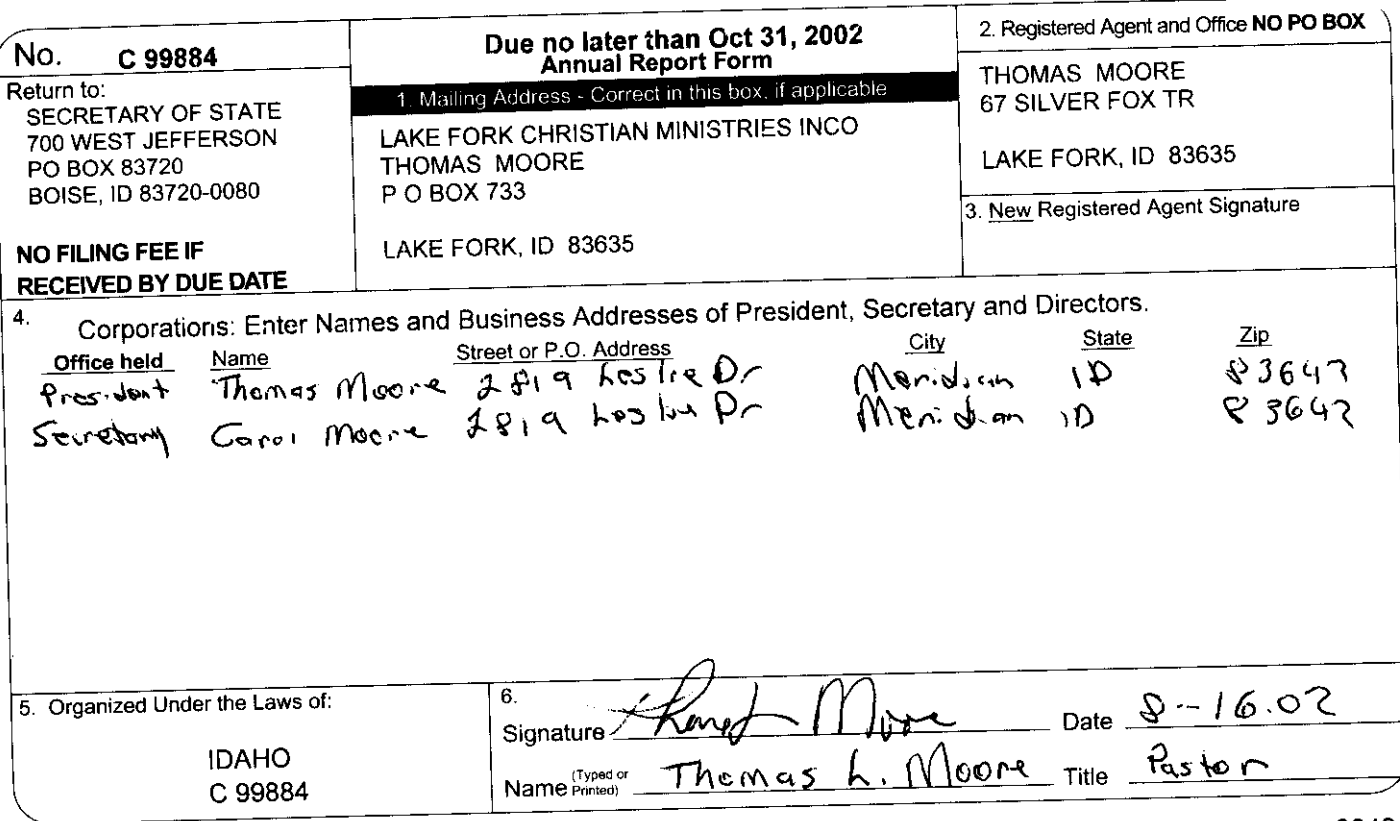 No. C 99884
Return to:
SECRETARY OF STATE
700 WEST JEFFERSON
PO BOX 83720
BOISE, ID 83720-0080
NO FILING FEE IF
RECEIVED BY DUE DATE
Due no later than Oct 31, 2002
Annual Report Form
1. Mailing Address - Correct in this box, if applicable
LAKE FORK CHRISTIAN MINISTRIES INCO
THOMAS MOORE
P O BOX 733
LAKE FORK, ID 83635
2. Registered Agent and Office NO PO BOX
THOMAS MOORE
67 SILVER FOX TR
LAKE FORK, ID 83635
3. New Registered Agent Signature
4. Corporations: Enter Names and Business Addresses of President, Secretary and Directors.
Office held Name Street or P.O. Address City State Zip
President Thomas Moore 2819 Leslie Dr Meridian ID 83642
Secretary Carol Moore 2819 Leslie Dr Meridian ID 83642
5. Organized Under the Laws of:
IDAHO
C 99884
6.
Signature Thomas Moore Date 8--16.02
Name (Typed or Printed) Thomas L. Moore Title Pastor